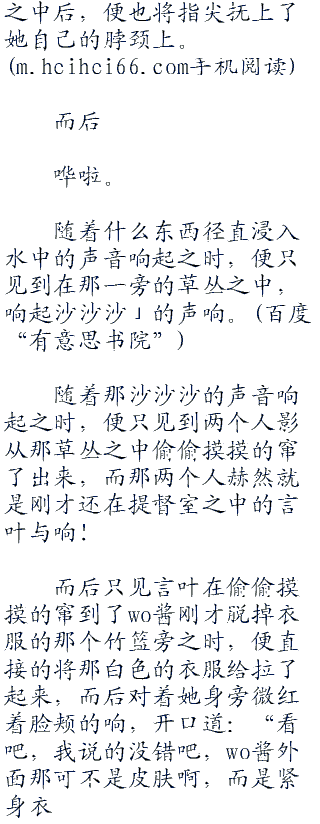 之中后，便也将指尖抚上了
她自己的脖颈上。
(m.hcihci66.com手机阅读)
而后
哗啦。
随着什么东西径直浸入
水中的声音响起之时，便只
见到在那一旁的草丛之中，
响起沙沙沙」的声响。(百度
“有意思书院”)
随着那沙沙沙的声音响
起之时，便只见到两个人影
从那草丛之中偷偷摸摸的窜
了出来，而那两个人赫然就
是刚才还在提督室之中的言
叶与响！
而后只见言叶在偷偷摸
摸的窜到了wo酱刚才脱掉衣
服的那个竹篮旁之时，便直
接的将那白色的衣服给拉了
起来，而后对着她身旁微红
着脸颊的响，开口道：“看
吧，我说的没错吧，wo酱外
面那可不是皮肤啊，而是紧
身衣